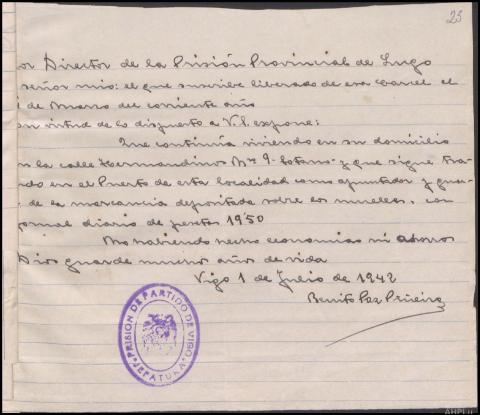 23
or Director de la Prisión Provincial de Lugo
señor mio: el que suscribe liberado de esa Carcel el
de Marzo del corriente año
en virtud de lo dispuesto a V.S. expone:
Que continúa viviendo en su domicilio
la calle Hermandinos Nº 9 - sotano - y que sigue tra
ndo en el Puerto de esta localidad como apuntador y guar
de la mercancia depositada sobre los muelles, con
jornal diario de pesetas 19'50
No habiendo hecho economias ni ahorros
Dios guarde muchos años de vida
Vigo 1 de Julio de 1942
Benito Paz Piñeiro
PRISION DE PARTIDO DE VIGO
JEFATURA